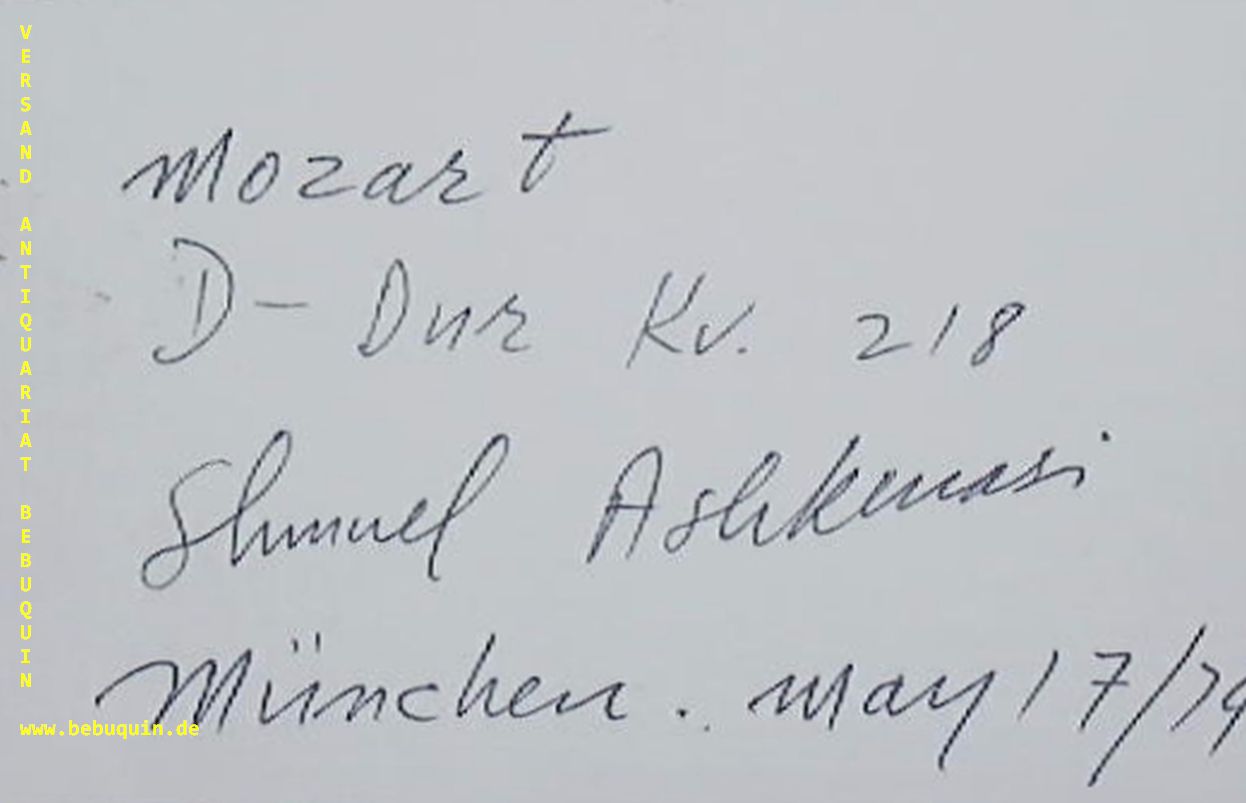 VERSAND ANTIQUARIAT BEBUQUIN
Mozart
D-Dur Kv. 218
Shmuel Ashkenasi
München. may 17/79
www.bebuquin.de